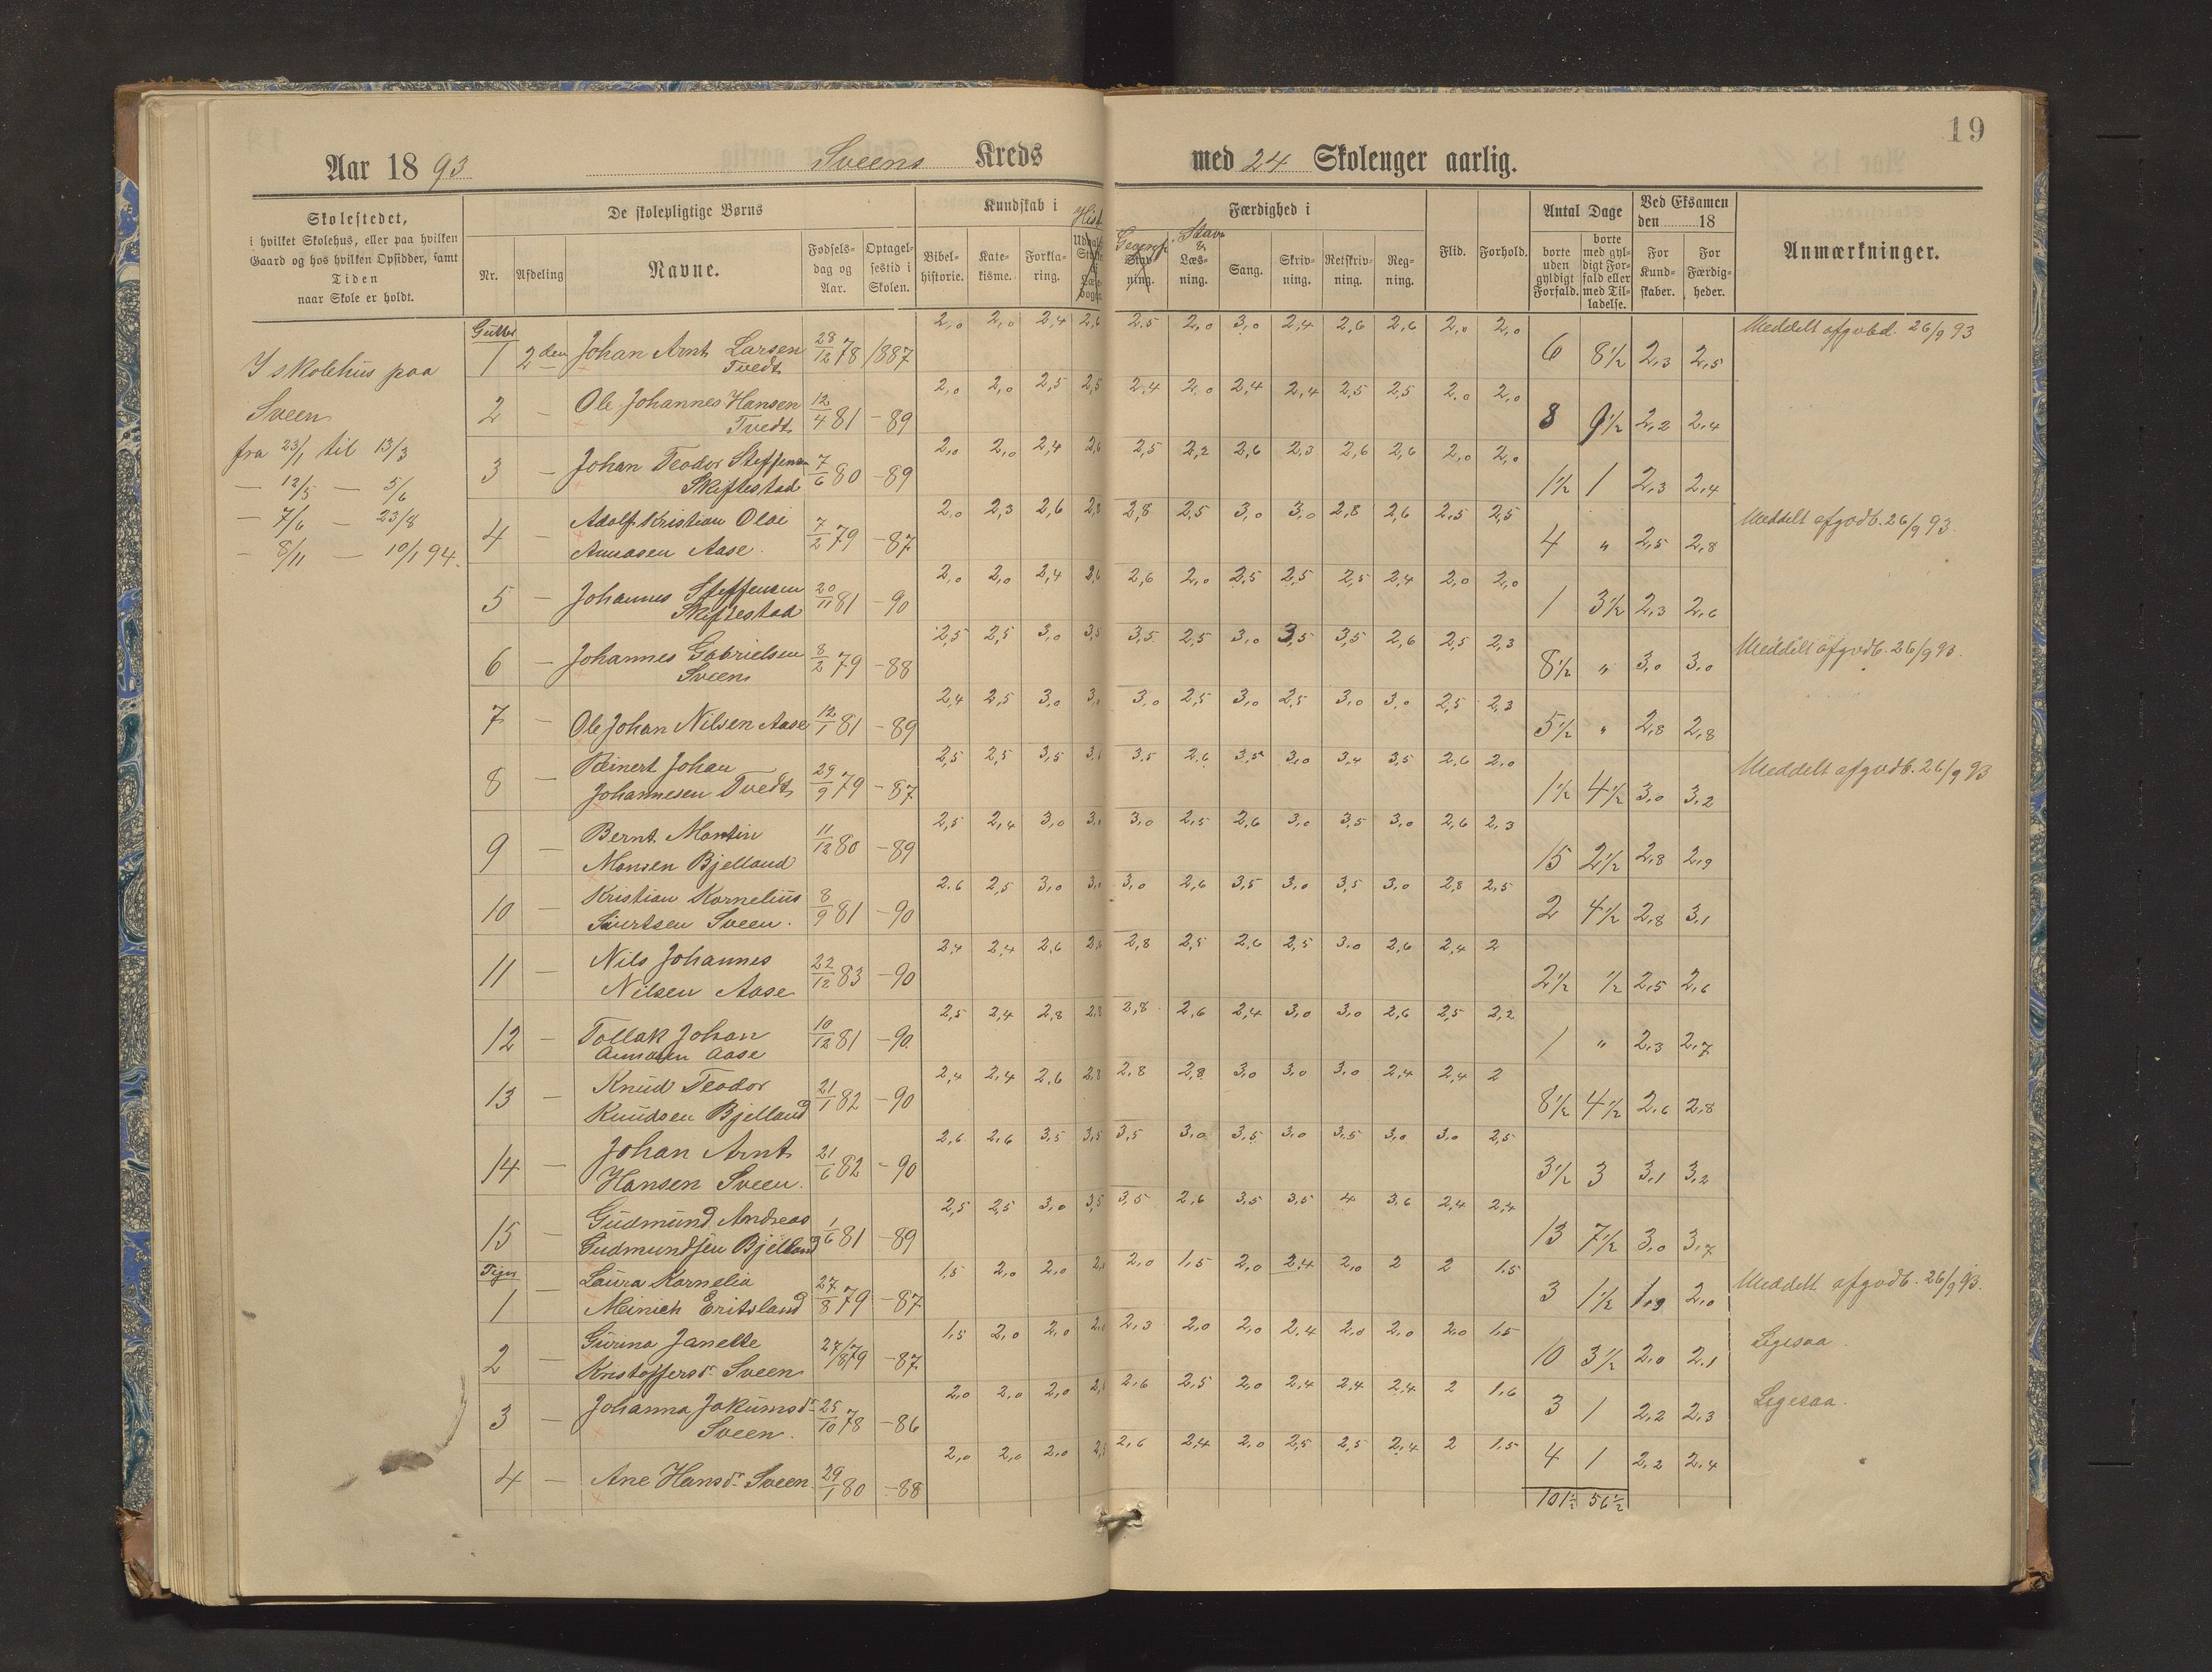 19
Aar 1893 Sveens Kreds med 24 Skoleuger aarlig.
Skolestedet,
i hvilket Skolehus, eller paa hvilken
Gaard og hos hvilken Opsidder, samt
Tiden
naar Skole er holdt.
De skolepligtige Børns
Nr. Afdeling Navne. Fødsels-dag og Aar. Optagel-sestid i Skolen.
Kundskab i
Bibel-historie. Kate-kisme. Forkla-ring. Hist.
Færdighed i
Geografi Stav- & Læs-ning. Sang. Skriv-ning. Retskriv-ning. Reg-ning.
Flid. Forhold.
Antal Dage
borte uden gyldigt Forfald. borte med gyl-digt For-fald eller med Til-ladelse.
Ved Eksamen den 18
For Kund-skaber. For Færdig-heder.
Anmærkninger.
I skolehus paa
Sveen
fra 23/1 til 13/3
— 12/5 — 5/6
— 7/6 — 23/8
— 8/11 — 10/1 94.
Gutter
1 2den Johan Arnt Larsen Tvedt 28/12 78 1887 2,0 2,0 2,4 2,6 2,5 2,0 3,0 2,4 2,6 2,6 2,0 2,0 6 8½ 2,3 2,5 Meddelt afgvbd. 26/9 93
2 — Ole Johannes Hansen Tvedt 12/4 81 -89 2,0 2,0 2,5 2,5 2,4 2,0 2,4 2,4 2,5 2,5 2,0 2,0 8 9½ 2,2 2,4
3 — Johan Teodor Steffensen Skiftestad 7/6 80 -89 2,0 2,0 2,4 2,6 2,5 2,2 2,6 2,3 2,6 2,6 2,0 2,0 1½ 1 2,3 2,4
4 — Adolf Kristian Olai Aanasen Aase. 7/2 79 -87 2,0 2,3 2,6 2,8 2,8 2,5 3,0 3,0 2,8 2,6 2,5 2,5 4 " 2,5 2,8 Meddelt afgvdb. 26/9 93.
5 — Johannes Steffensen Skiftestad 20/11 81 -90 2,0 2,0 2,4 2,6 2,6 2,0 2,5 2,5 2,5 2,4 2,0 2,0 1 3½ 2,3 2,6
6 — Johannes Gabrielsen Sveen 8/2 79 -88 2,5 2,5 3,0 3,5 3,5 2,5 3,0 3,5 3,5 2,6 2,5 2,3 8½ " 3,0 3,0 Meddelt afgvdb. 26/9 93.
7 — Ole Johan Nilsen Aase 12/1 81 -89 2,4 2,5 3,0 3, 3,0 2,5 3,0 2,5 3,0 3,0 2,5 2,3 5½ " 2,8 2,8
8 — Reinert Johan Johannesen Tvedt 29/9 79 -87 2,5 2,5 3,5 3, 3,5 2,6 3,5 3,0 3,4 3,5 2,6 2,0 1½ 4½ 3,0 3,2 Meddelt afgvdb. 26/9 93
9 — Bernt Martin Monsen Bjelland 11/12 80 -89 2,5 2,4 3,0 3, 3,0 2,5 2,6 3,0 3,5 3,0 2,6 2,3 15 2½ 2,8 2,9
10 — Kristian Kornelius Siurtsen Sveen. 8/9 81 -90 2,6 2,5 3,0 3, 3,0 2,6 3,5 3,0 3,5 3,0 2,8 2,5 2 4½ 2,8 3,1
11 — Nils Johannes Nilsen Aase 22/12 83 -90 2,4 2,4 2,6 2,8 2,8 2,5 2,6 2,5 3,0 2,6 2,4 2 2½ ½ 2,5 2,6
12 — Tollak Johan Aanasen Aase 10/12 81 -90 2,5 2,4 2,8 2,8 2,8 2,6 2,4 3,0 3,0 2,6 2,5 2,2 1 " 2,3 2,7
13 — Knud Teodor Knudsen Bjelland 21/1 82 -90 2,4 2,4 2,6 2,8 2,8 2,8 3,0 3,0 3,0 2,4 2,4 2 8½ 4½ 2,6 2,8
14 — Johan Arnt Hansen Sveen. 21/6 82 -90 2,6 2,6 3,5 3,5 3,5 3,0 3,5 3,0 3,5 3,0 3,0 2,5 3½ 3 3,1 3,2
15 — Gudmund Andreas Gudmundsen Bjelland 1/6 81 -89 2,5 2,5 3,0 3,5 3,5 2,6 3,5 3,5 4 3,6 2,4 2,4 13 7½ 3,0 3,7
Piger
1 — Laura Kornelia Meinich Eritsland 27/8 79 -87 1,5 2,0 2,0 2, 2,0 1,5 2,0 2,4 2,0 2 2 1,5 3 1½ 1,9 2,0 Meddelt afgvdb. 26/9 93.
2 — Gurina Janette Kristoffersdr Sveen 27/8 79 -87 1,5 2,0 2,0 2,0 2,3 2,0 2,0 2,4 2,0 2,0 2,0 1,5 10 3½ 2,0 2,1 Ligesaa.
3 — Johanna Jokumsdr Sveen. 25/10 78 -86 2,0 2,0 2,0 2, 2,6 2,5 2,0 2,4 2,4 2,4 2 1,6 3 1 2,2 2,3 Ligesaa.
4 — Ane Hansdr Sveen 29/1 80 -88 2,0 2,0 2,0 2,5 2,6 2,4 2,0 2,5 2,5 2,4 2 1,5 4 1 2,2 2,4
101½ 56½